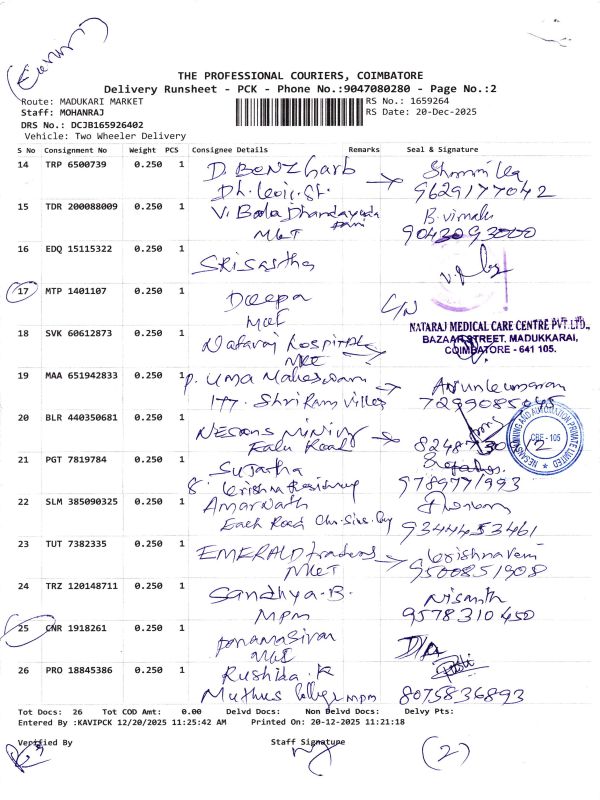 THE PROFESSIONAL COURIERS, COIMBATORE
Delivery Runsheet - PCK - Phone No.:9047080280 - Page No.:2
Route: MADUKARI MARKET
RS No.: 1659264
Staff: MOHANRAJ
RS Date: 20-Dec-2025
DRS No.: DCJB165926402
Vehicle: Two Wheeler Delivery
S No Consignment No Weight PCS Consignee Details Remarks Seal & Signature
14 TRP 6500739 0.250 1 D. BENZ Garb
9629177042
15 TDR 200088009 0.250 1 V. Bala Dhandayuda pani B. vimala
MKT 9042093000
16 EDQ 15115322 0.250 1
SRISastha
17 MTP 1401107 0.250 1 Deepa C/N
NATARAJ MEDICAL CARE CENTRE PVT.LTD.,
BAZAAR STREET, MADUKKARAI,
COIMBATORE - 641 105.
18 SVK 60612873 0.250 1 Nataraj Hospital
19 MAA 651942833 0.250 1 P. Uma Maheswari Arjunkumaran
177. Shri Ram Villas 7299085045
20 BLR 440350681 0.250 1 NESANS MINING
Road
NESANS MINING AND AUTOMATION PRIVATE LIMITED
CBE - 105
21 PGT 7819784 0.250 1 Sujatha
Krishna Residency 9789771993
22 SLM 385090325 0.250 1 Amarnath
Road 9344453461
23 TUT 7382335 0.250 1 EMERALD traders Krishnaveni
MKT 9500851908
24 TRZ 120148711 0.250 1 Sandhya. B. Nisanth
MPM 9578310450
25 CNR 1918261 0.250 1 D/A
26 PRO 18845386 0.250 1 Rushida. K
Muthus College mpm 8075836893
Tot Docs: 26 Tot COD Amt: 0.00 Delvd Docs: Non Delvd Docs: Delvy Pts:
Entered By :KAVIPCK 12/20/2025 11:25:42 AM Printed On: 20-12-2025 11:21:18
Verified By Staff Signature
(2)